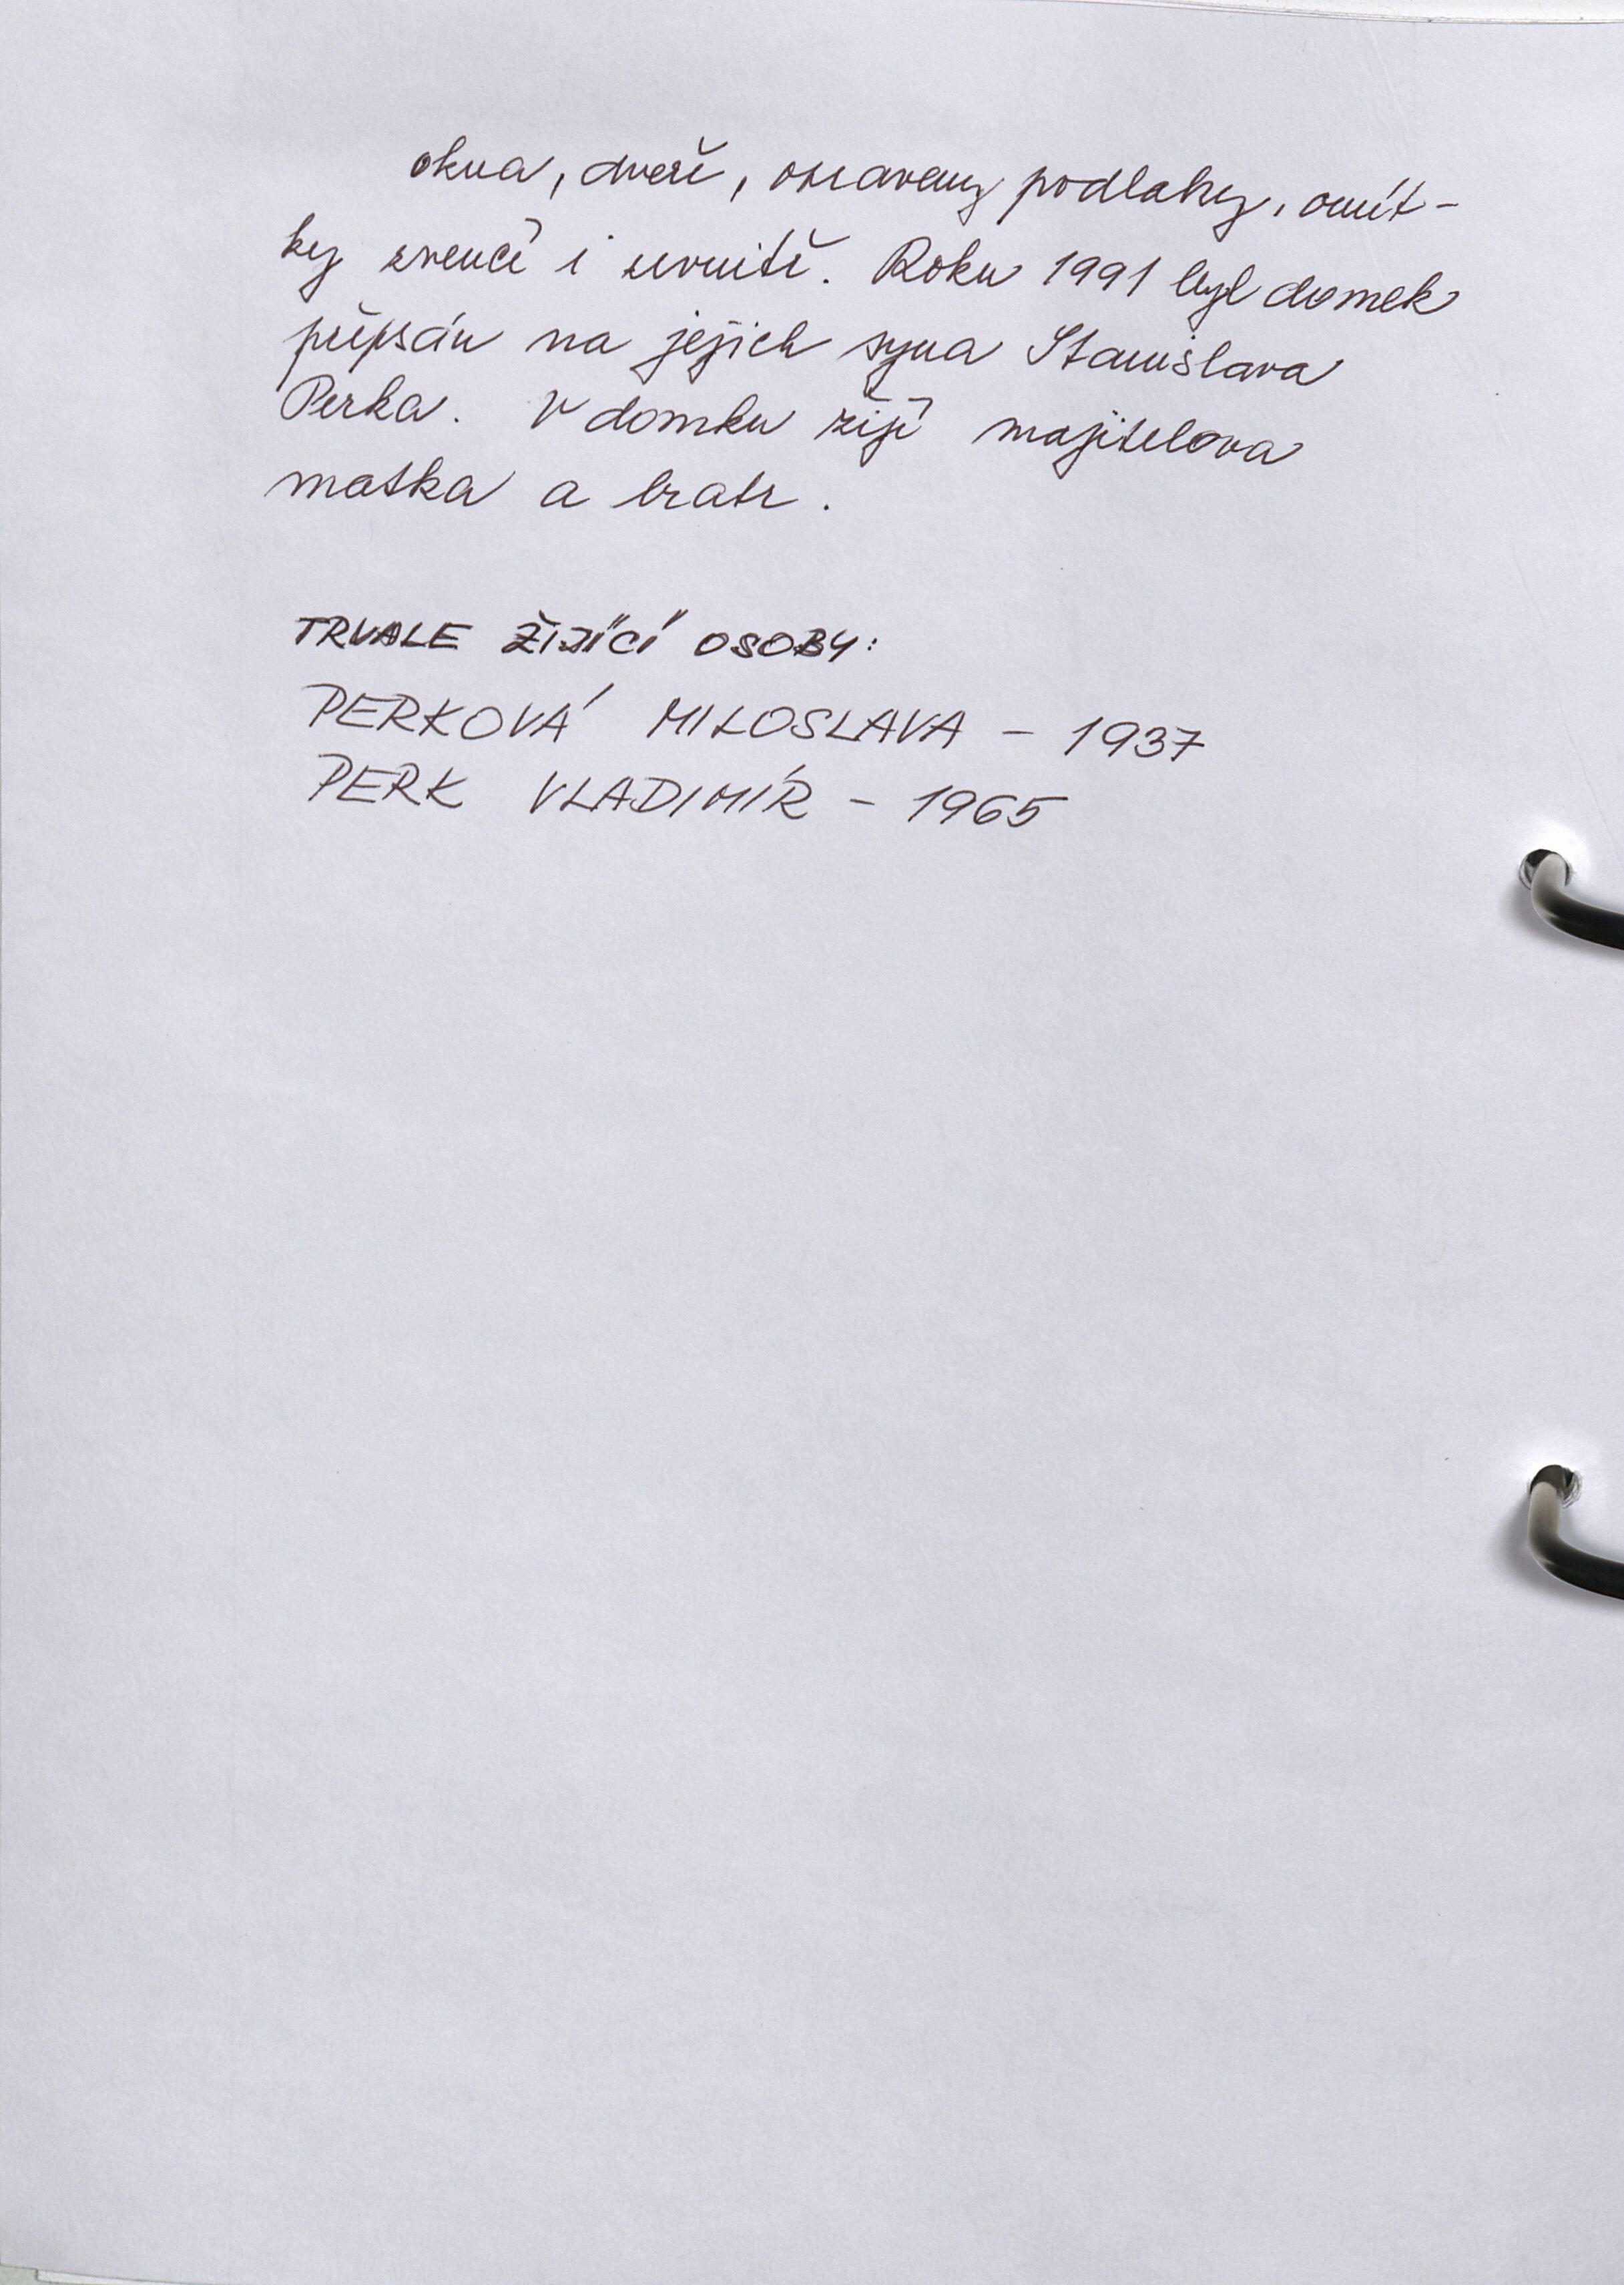 okna, dveře, opraveny podlahy, omít-
ky zvenčí i uvnitř. Roku 1991 byl domek
přepsán na jejich syna Stanislava
Perka. V domku žijí majitelova
matka a bratr.
TRVALE ŽIJÍCÍ OSOBY:
PERKOVÁ MILOSLAVA - 1937
PERK VLADIMÍR - 1965